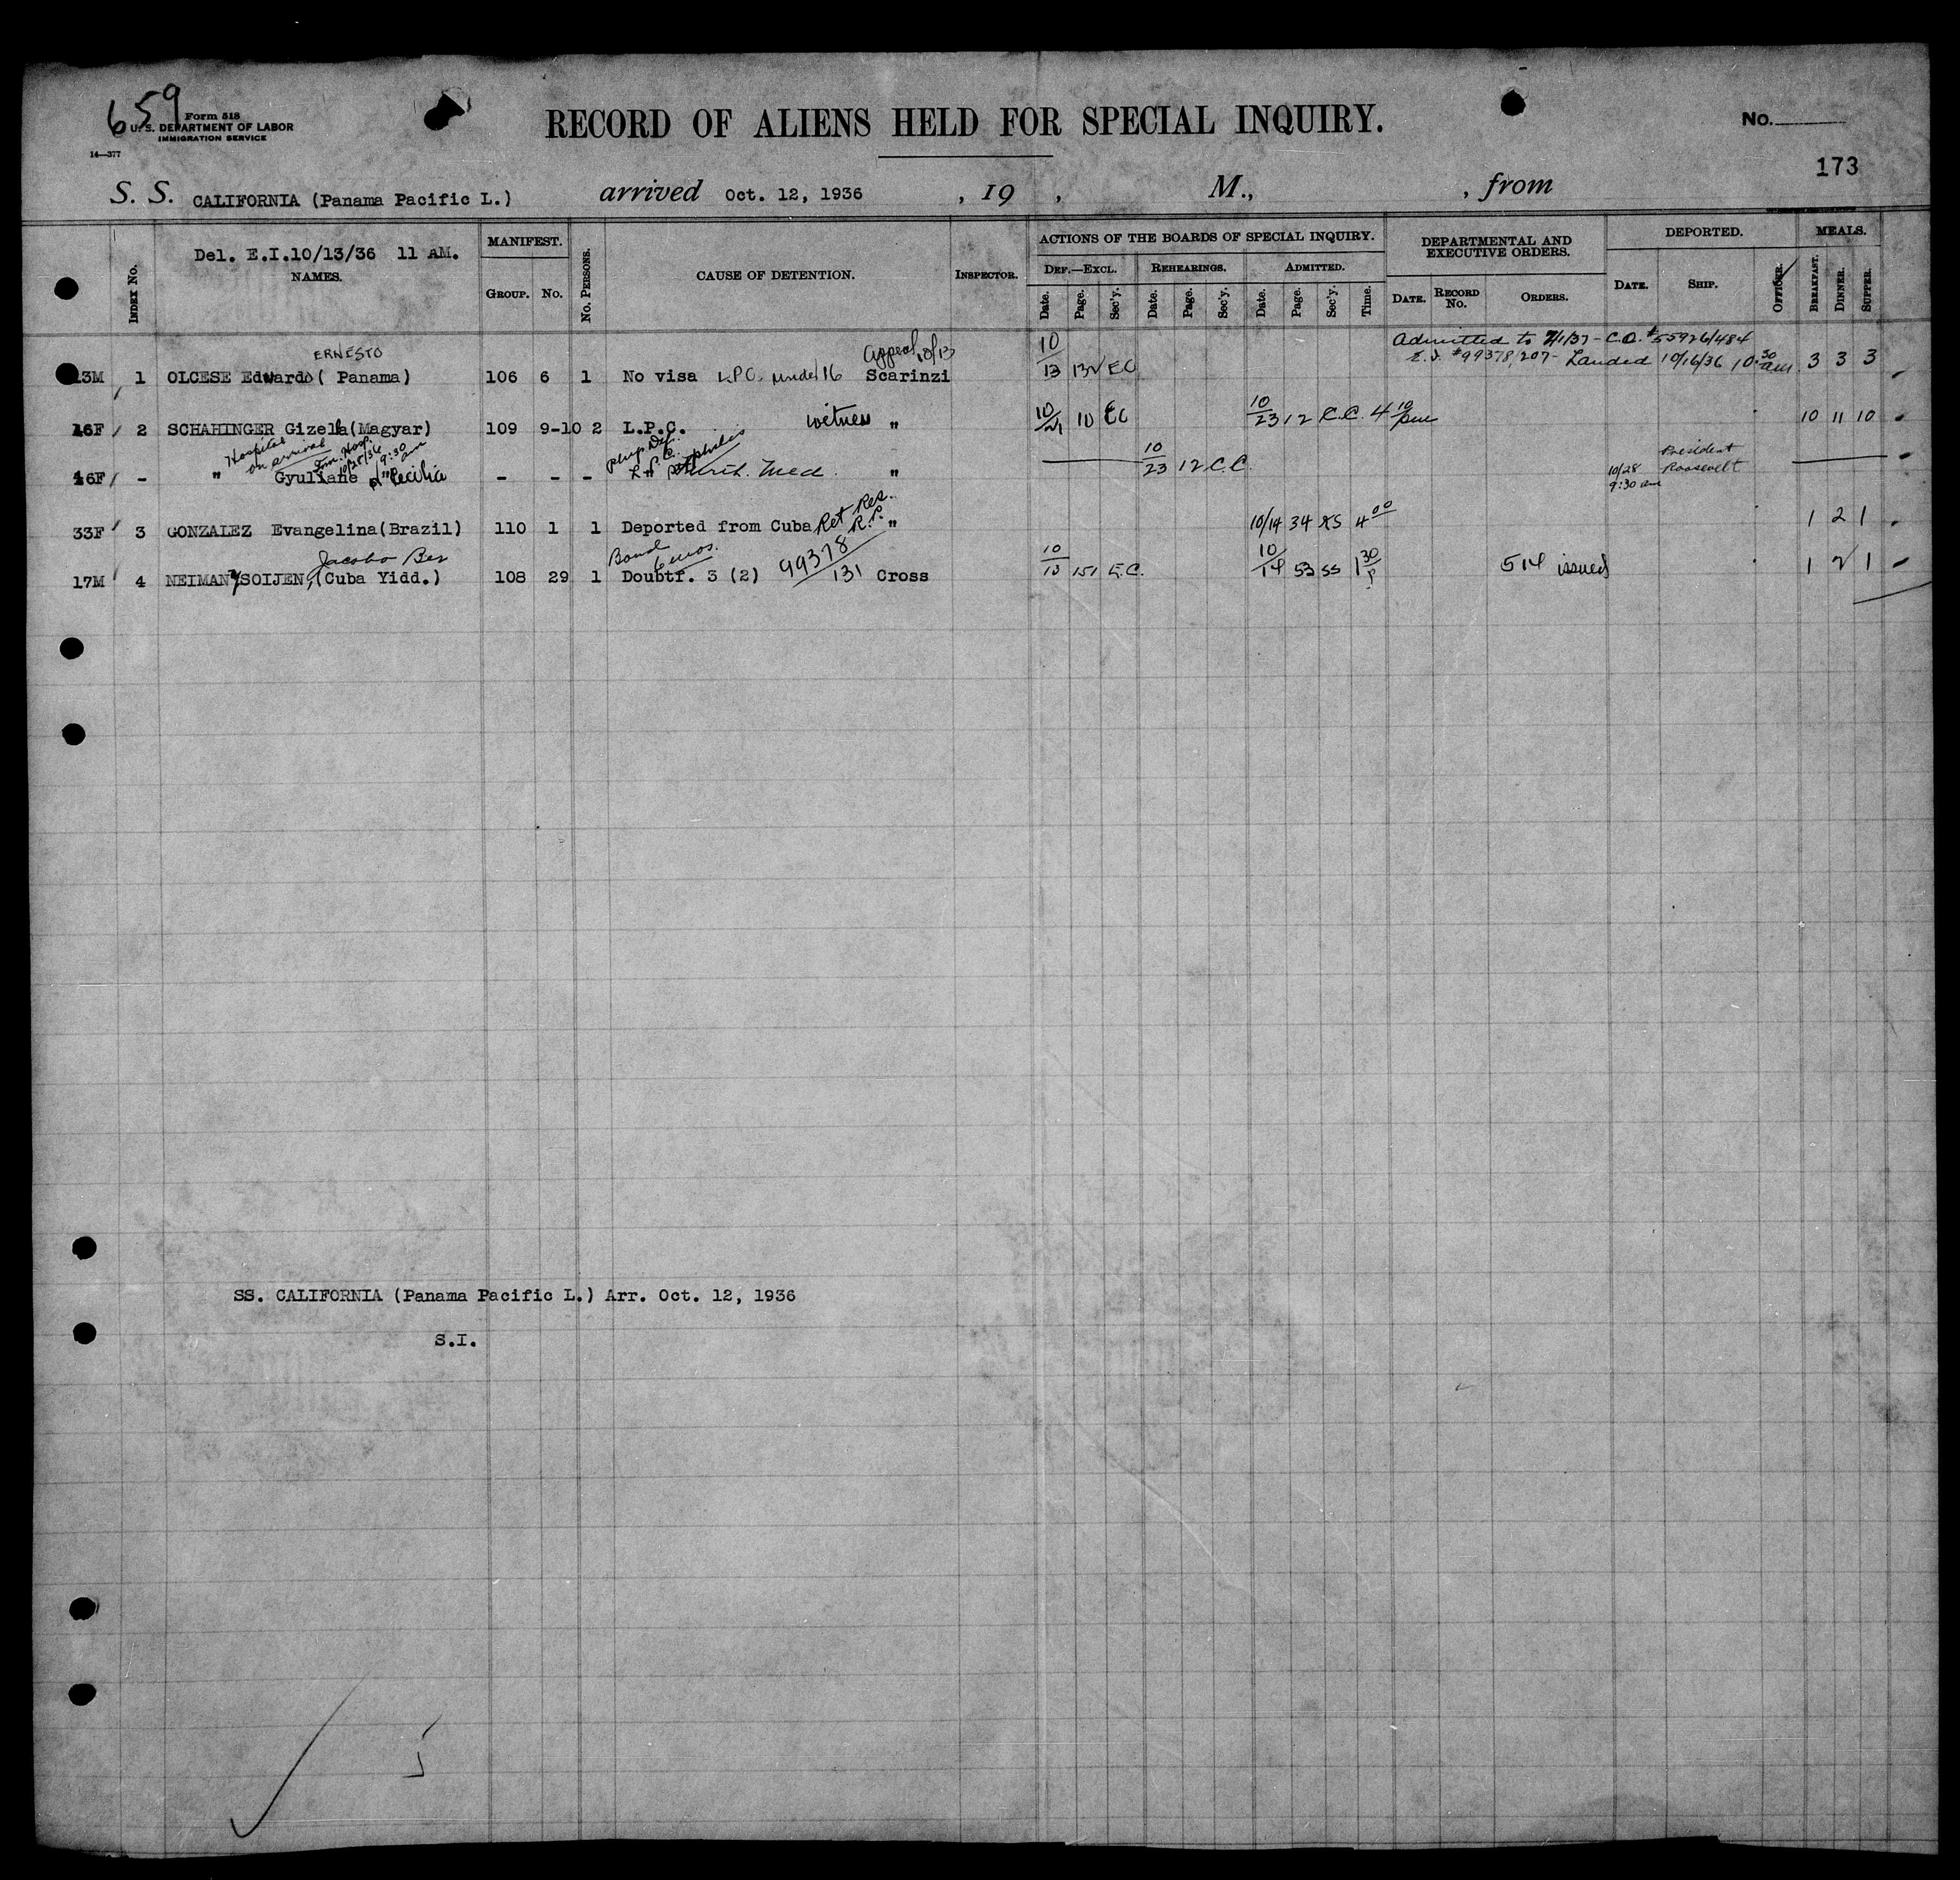 659
Form 518
U. S. DEPARTMENT OF LABOR
IMMIGRATION SERVICE
14—377
RECORD OF ALIENS HELD FOR SPECIAL INQUIRY.
No.
173
S. S. CALIFORNIA (Panama Pacific L.) arrived Oct. 12, 1936 , 19 , M., , from
Del. E.I.10/13/36 11 AM.
INDEX No. NAMES. MANIFEST. GROUP. No. No. PERSONS. CAUSE OF DETENTION. INSPECTOR. ACTIONS OF THE BOARDS OF SPECIAL INQUIRY. DEF.—EXCL. Date. Page. Sec'y. REHEARINGS. Date. Page. Sec'y. ADMITTED. Date. Page. Sec'y. Time. DEPARTMENTAL AND EXECUTIVE ORDERS. DATE. RECORD No. ORDERS. DEPORTED. DATE. SHIP. OFFICER. MEALS. BREAKFAST. DINNER. SUPPER.
ERNESTO Appeal 10/13 10 Admitted to 7/1/37 - C.O. #55926/484
13M 1 OLCESE Edwardo ( Panama) 106 6 1 No visa L.P.C. under 16 Scarinzi 13 132 EC E.I. #99378/207- Landed 10/16/36 10:30 am 3 3 3
16F 2 SCHAHINGER Gizella(Magyar) 109 9-10 2 L.P.C. witness " 10/21 10 EC 10/23 12 C.C. 4 10 pm 10 11 10
Hospital on arrival Fm. Hosp. 10/28/36 9:30 am Phys. Def. President
16F - " Gyuliane Cecilia - - - L.P.C. syphilis Med. " 10/23 12 C.C. 10/28 9:30 am Roosevelt
33F 3 GONZALEZ Evangelina(Brazil) 110 1 1 Deported from Cuba Ret Res. R.P. " 10/14 34 RS 4 00 1 2 1
Jacobo Ber Bond 6 mos. 99378/131
17M 4 NEIMAN y SOIJEN,(Cuba Yidd.) 108 29 1 Doubtf. 3 (2) Cross 10/13 151 E.C. 10/14 53 SS 1 30 P 514 issued 1 2 1
SS. CALIFORNIA (Panama Pacific L.) Arr. Oct. 12, 1936
S.I.
5